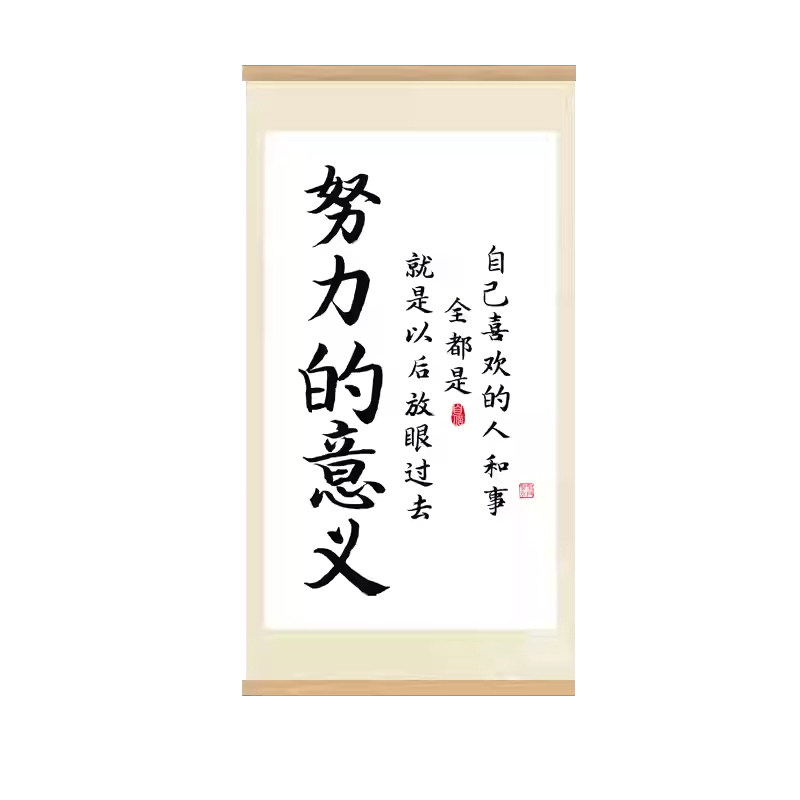 努力的意义
就是以后放眼过去
全都是
自己喜欢的人和事